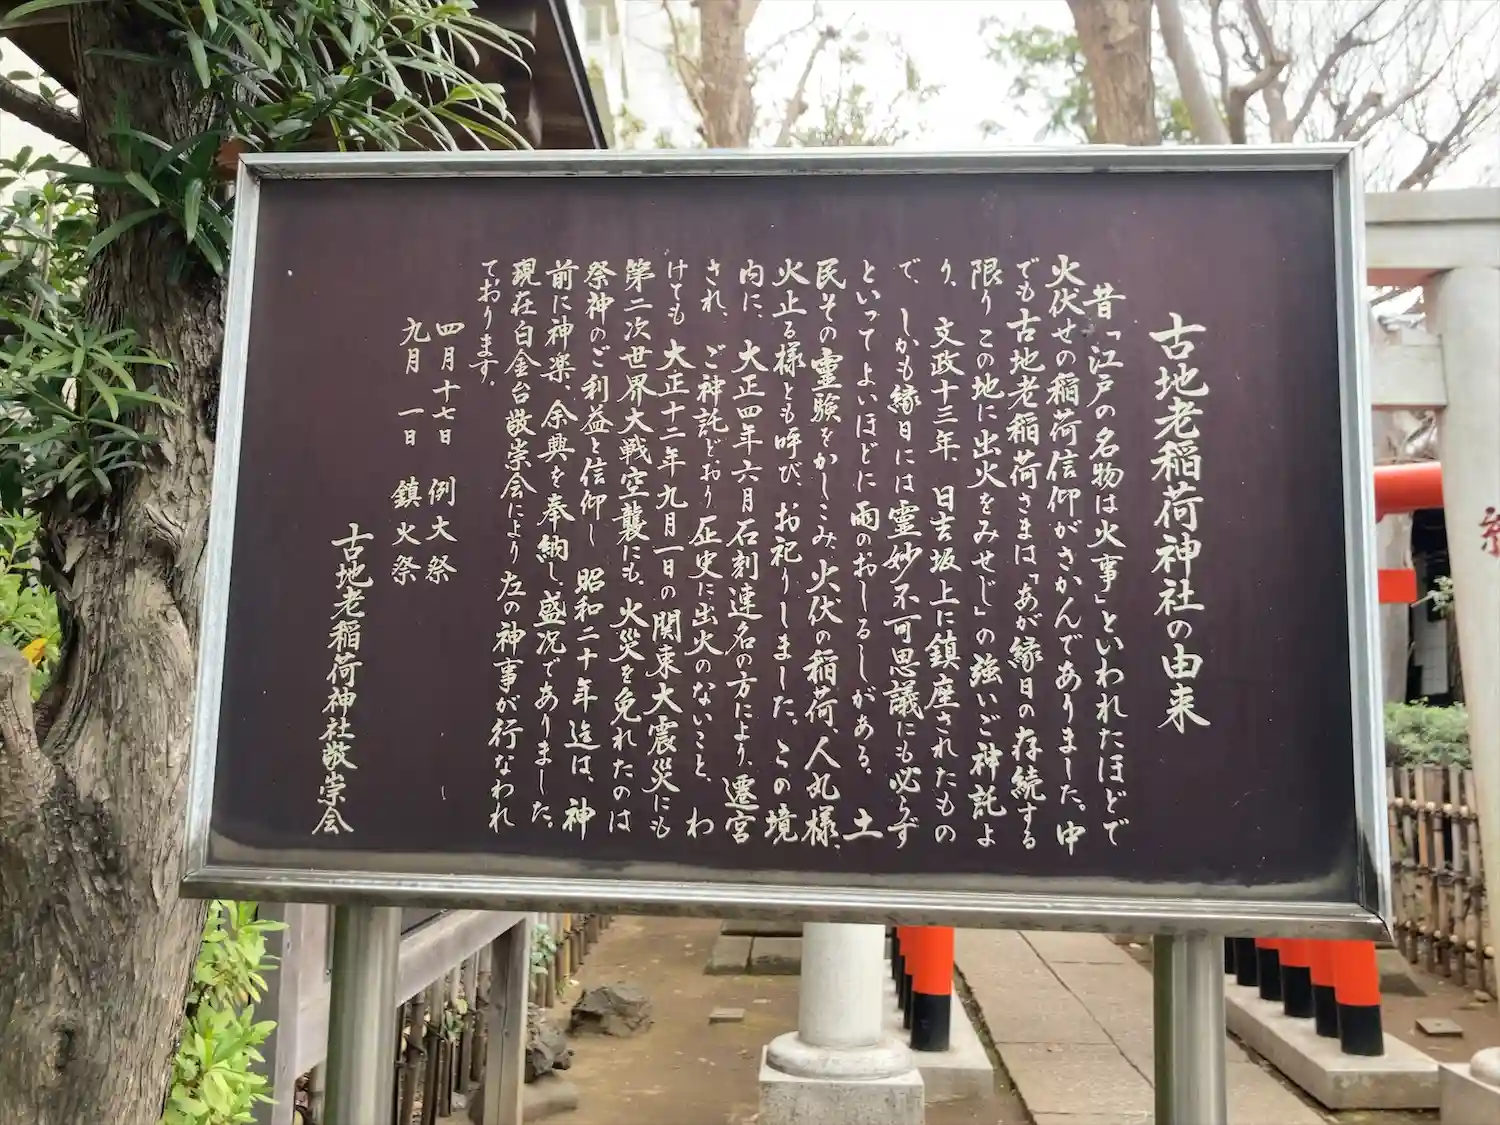 古地老稲荷神社の由来
昔「江戸の名物は火事」といわれたほどで
火伏せの稲荷信仰がさかんでありました。中
でも古地老稲荷さまは「あが縁日の存続する
限りこの地に出火をみせじ」の強いご神託よ
り、文政十三年、日吉坂上に鎮座されたもの
で、しかも縁日には霊妙不可思議にも必らず
といってよいほどに雨のおしるしがある。土
民その霊験をかしこみ、火伏の稲荷、人丸様、
火止る様とも呼び、お祀りしました。この境
内に、大正四年六月石刻連名の方により、遷宮
され、ご神託どおり歴史に出火のないこと、わ
けても大正十二年九月一日の関東大震災にも
第二次世界大戦空襲にも、火災を免れたのは
祭神のご利益と信仰し昭和二十年迄は、神
前に神楽、余興を奉納し、盛況でありました。
現在白金台敬崇会により左の神事が行なわれ
ております。
四月十七日 例大祭
九月 一日 鎮火祭
古地老稲荷神社敬崇会